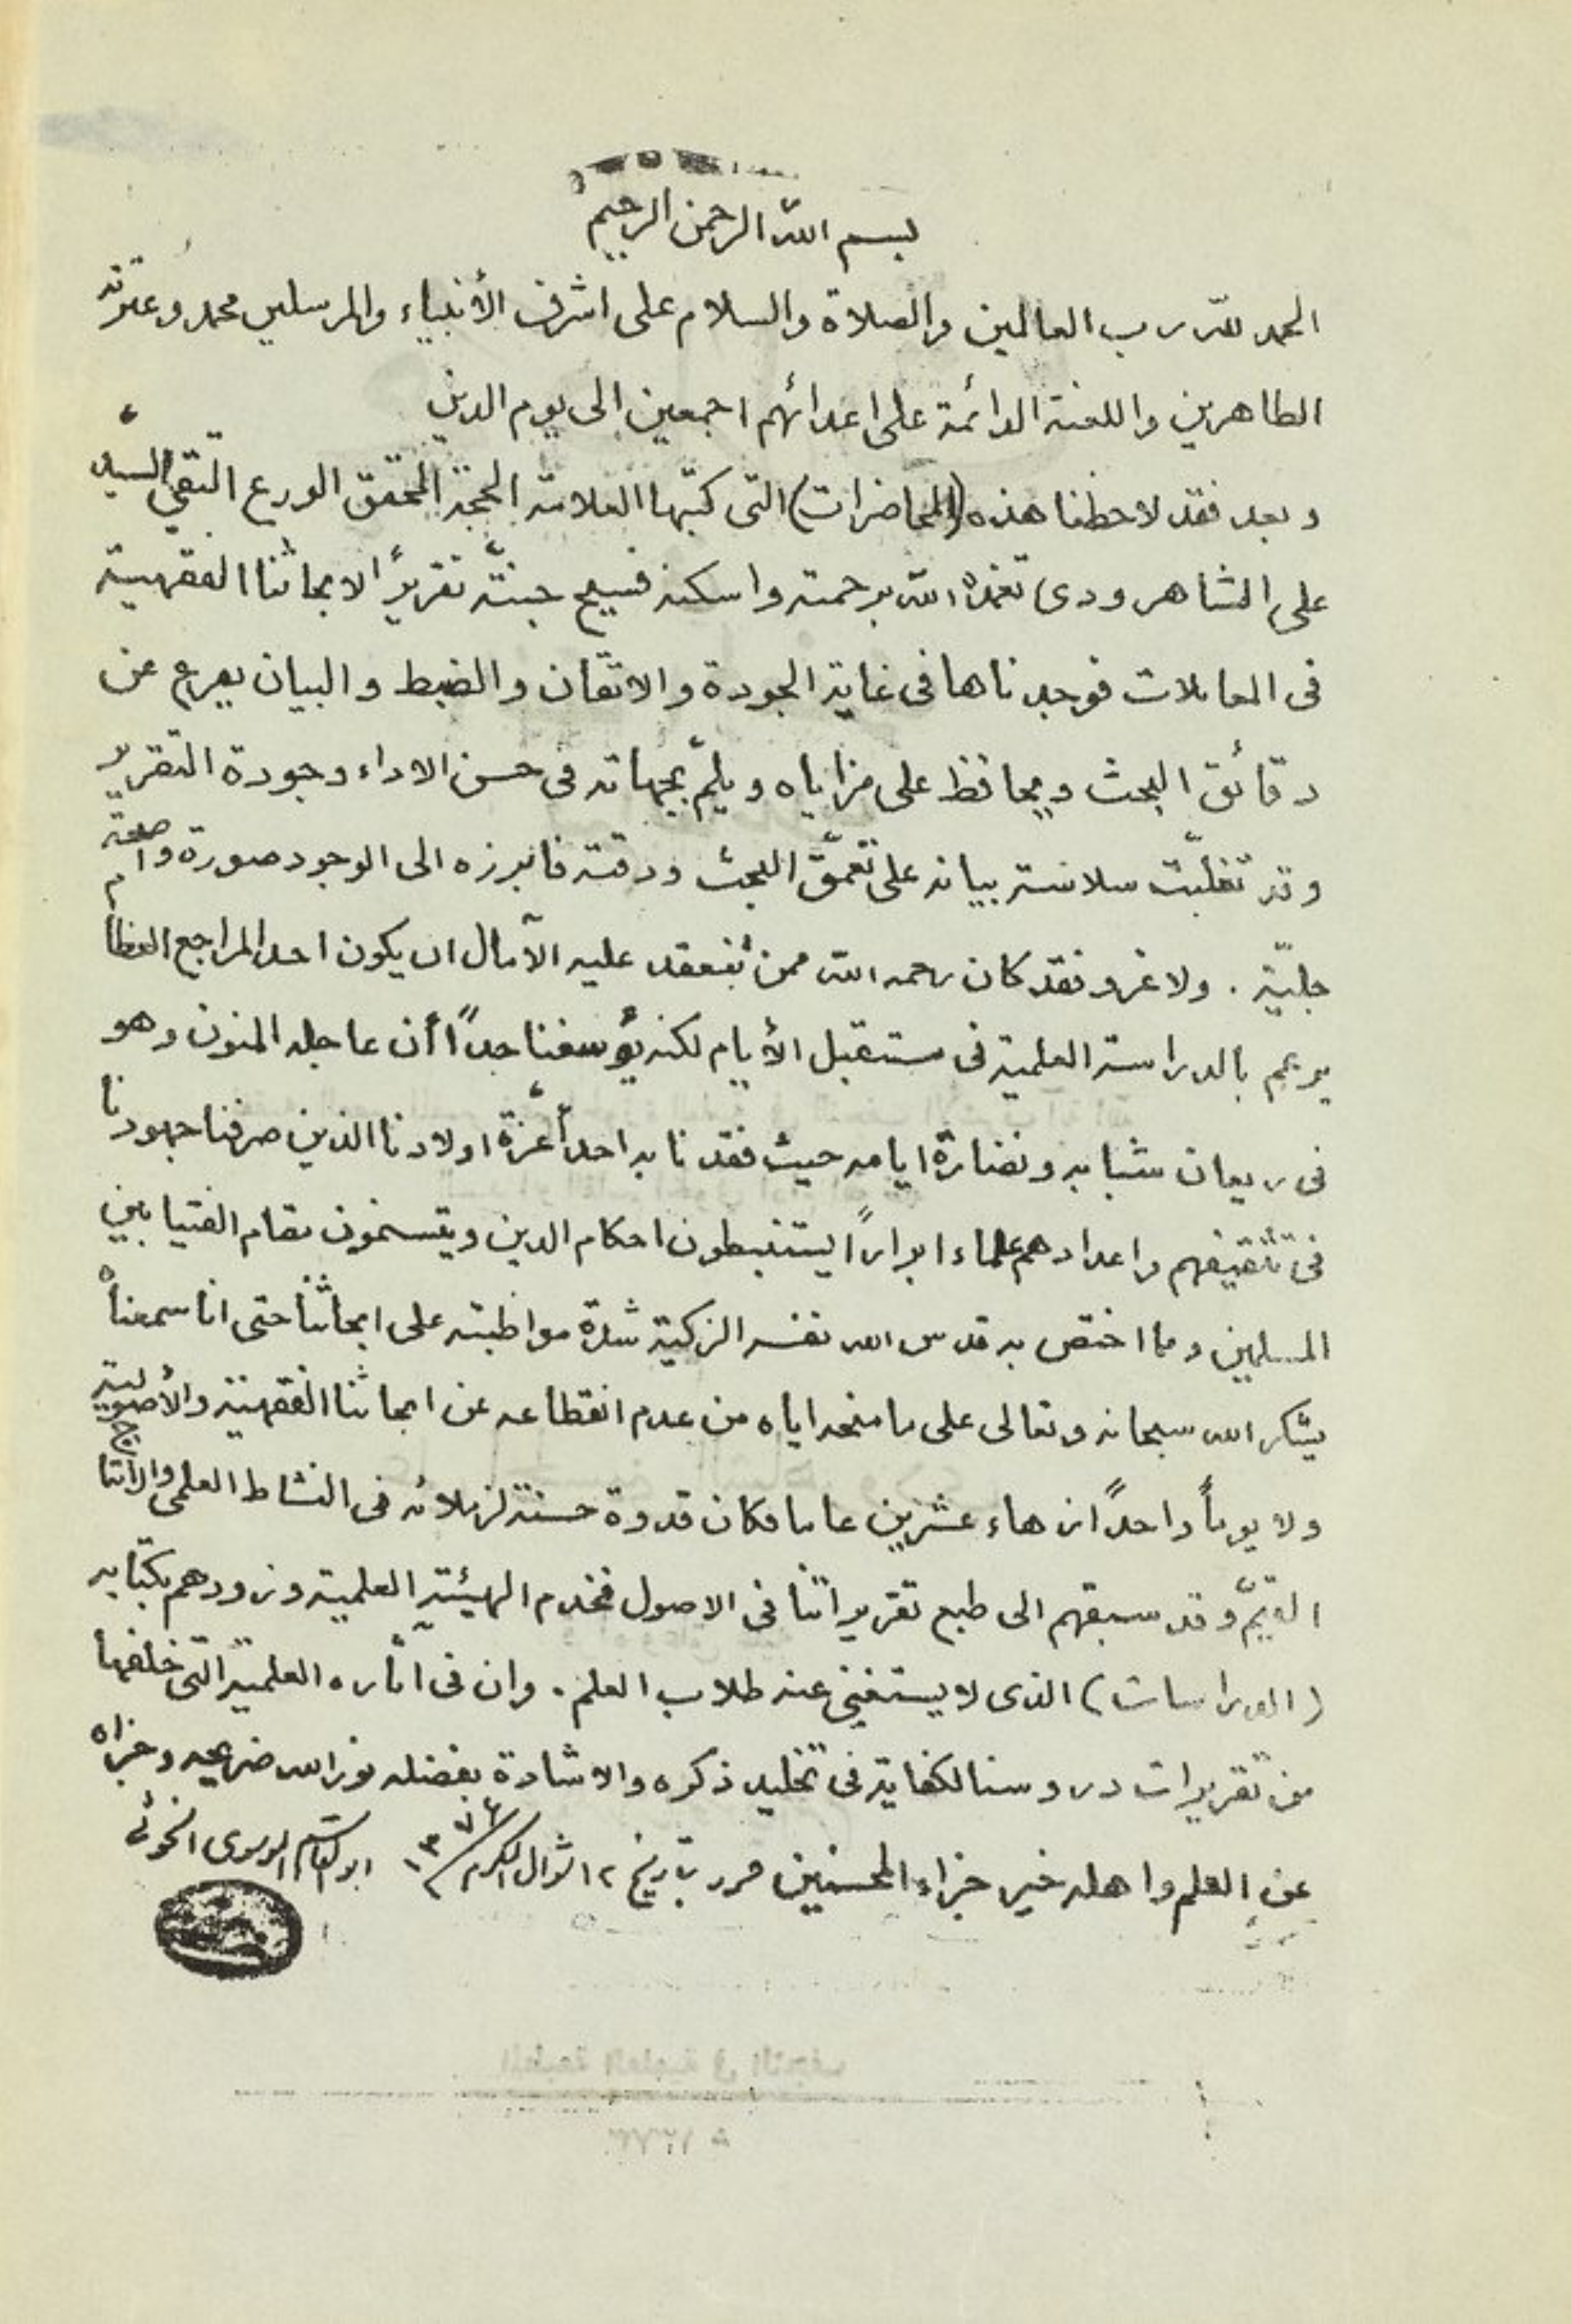 بسم الله الرحمن الرحيم
الحمد لله رب العالمين والصلاة والسلام على اشرف الأنبياء والمرسلين محمد وعترته
الطاهرين واللعنة الدائمة على اعدائهم اجمعين الى يوم الدين
وبعد فقد لاحظنا هذه (المحاضرات) التى كتبها العلامة الحجة المحقق الورع التقي السيد
على الشاهرودى تغمده الله برحمته واسكنه فسيح جنته تقريرًا لابحاثنا الفقهية
فى المعاملات فوجدناها فى غاية الجودة والاتقان والضبط والبيان يعرج عن
دقائق البحث ويحافظ على مزاياه ويلمّ بجهاته فى حسن الاداء وجودة التقرير
وقد تغلبّت سلاسة بيانه على تعمّق البحث ودقته فابرزه الى الوجود صورة واضحة
جليّة . ولا غرو فقد كان رحمه الله ممن تنعقد عليه الآمال ان يكون احد المراجع العظام
يوم بالدراسة العلمية فى مستقبل الأيام لكنه يؤسفنا جدًا أن عاجله المنون وهو
فى ريعان شبابه ونضارة ايامه حيث فقدنا به احد أعزّة اولادنا الذين صرفنا جهودنا
فى تثقيفهم واعدادهم علماء ابرارًا يستنبطون احكام الدين ويتسنمون مقام الفتيا بين
المسلمين ومما اختص به قدس الله نفسه الزكية شدة مواظبته على ابحاثنا حتى انا سمعناه
يشكر الله سبحانه وتعالى على ما منحه اياه من عدم انقطاعه عن ابحاثنا الفقهية والأصولية
ولا يومًا واحدًا زهاء عشرين عاما فكان قدوة حسنة لزملائه فى النشاط العلمى والانتاج
القيّم وقد سبقهم الى طبع تقريراتنا فى الاصول فخدم الهيئة العلمية وزودهم بكتابه
(الدراسات) الذى لا يستغنى عنه طلاب العلم . وان فى آثاره العلمية التى خلفها
من تقريرات دروسنا لكفاية فى تخليد ذكره والاشادة بفضله نور الله ضريحه وجزاه
عن العلم واهله خير جزاء المحسنين حرر بتاريخ ٢١ شوال المكرم ١٣٧٦ ابو القاسم الموسوى الخوئى